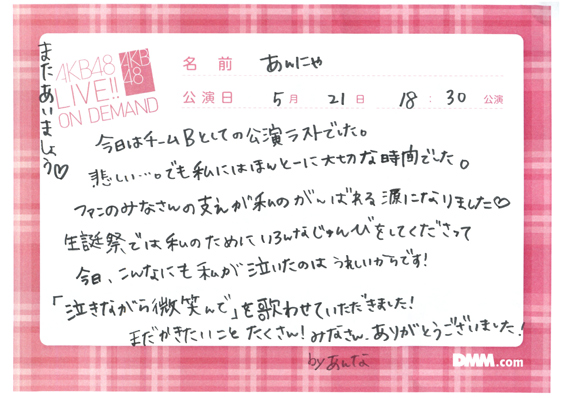 AKB48
LIVE!!
ON DEMAND
AKB
48
名前 あんにゃ
公演日 5月 21日 18:30 公演
今日はチームBとしての公演ラストでした。
悲しい…。でも私にはほんとーに大切な時間でした。
ファンのみなさんの支えが私のがんばれる源になりました♡
生誕祭では私のためにいろんなじゅんびをしてくださって
今日、こんなにも私が泣いたのはうれしいからです!
「泣きながら微笑んで」を歌わせていただきました!
まだかきたいことたくさん!みなさん、ありがとうございました!
byあんな
またあいましょう♡
DMM.com